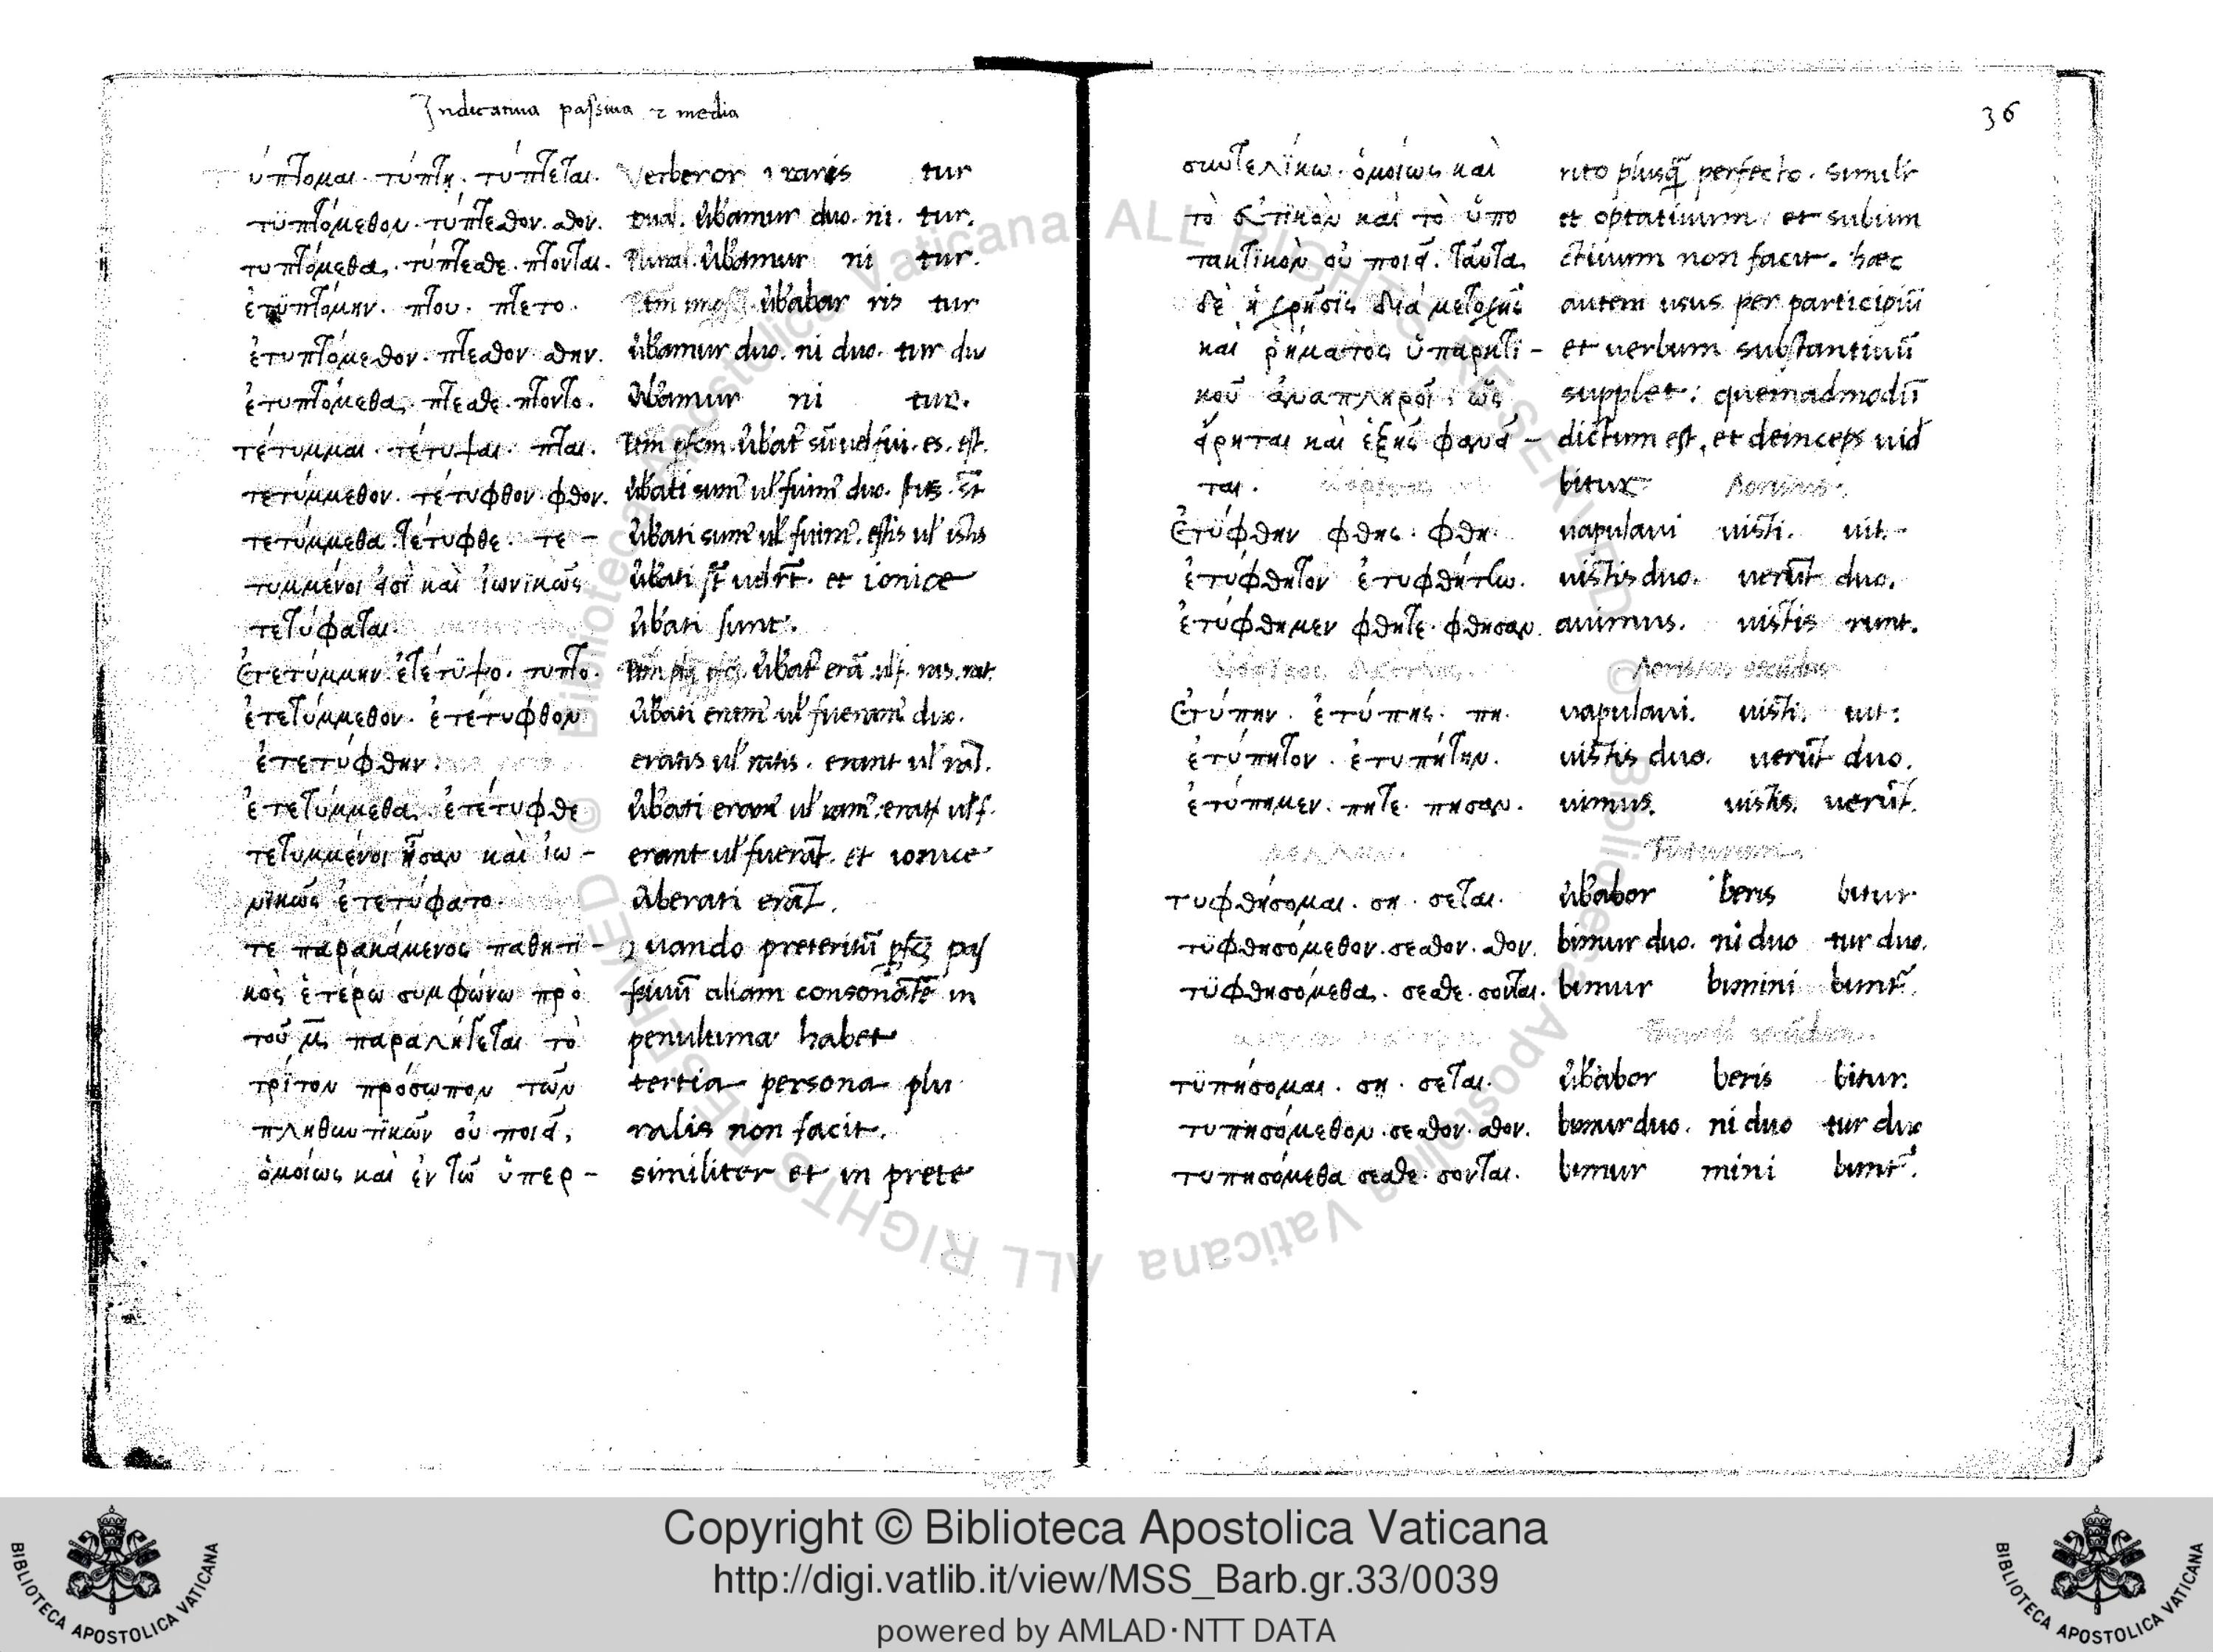 Indicatiua passiua et media
ύπτομαι· τύπτῃ· τύπτεται. Verberor raris tur
τυπτόμεθον· τύπτεσθον· σθον. ūbamur duo· ni· tur.
τυπτόμεθα· τύπτεσθε· πτονται. ūbamur ni tur.
ἐτυπτόμην· πτου· πτετο· ūbabar ris tur
ἐτυπτόμεθον· πτεσθον σθην. ūbamur duo. ni duo. tur du
ἐτυπτόμεθα· πτεσθε· πτοντο. ūbamur ni tur.
τέτυμμαι· τέτυψαι· πται. es. est.
τετύμμεθον· τέτυφθον· φθον. ūbati duo.
τετύμμεθα τέτυφθε· τε - ūbati
τυμμένοι εἰσὶ καὶ ἰωνικῶς ūbati et ionice
τετύφαται. ūbati sunt.
Ἐτετύμμην ἐτέτυψο· τυπτο.
ἐτετύμμεθον· ἐτέτυφθον ūbati duo.
ἐτετύφθην. eratis ul ratis. erant ul
ἐτετύμμεθα· ἐτέτυφθε ūbati
τετυμμένοι ἦσαν καὶ ἰω - erant ul fuerāt. et ionice
νικῶς ἐτετύφατο. ūberati erāt.
τε παρακείμενος παθητι - Quando preteritū pas
κὸς ἑτέρω συμφώνω πρὸ siuū aliam consonātē in
τοῦ μ παραλήγεται τὸ penultima habet
τρίτον πρόσωπον τῶν tertia persona plu
πληθυντικῶν οὐ ποιεῖ, ralis non facit.
ὁμοίως καὶ ἐν τῶ ὑπερ - similiter et in prete
36
συντελίκω· ὁμοίως καὶ rito plusq̄ perfecto. similr
τὸ εὐκτικὸν καὶ τὸ ὑπο et optatiuum et subiun
τακτικὸν οὐ ποιεῖ. ταῦτα ctiuum non facit. haec
δὲ ἡ χρῆσις διὰ μετοχῆς autem usus per participiū
καὶ ῥήματος ὑπαρκτι - et uerbum substantiuū
κοῦ ἀναπληροῖ· ὡς supplet: quemadmodū
εἴρηται καὶ ἑξῆς φανεῖ - dictum est, et deinceps uid
ται. bitur Aoristus.
Ἐτύφθην φθης· φθη· uapulaui uisti. uit.
ἐτύφθητον ἐτυφθήτην. uistis duo. uerūt duo.
ἐτύφθημεν φθητε· φθησαν. auimus. uistis runt.
Aoristus secūdus
Ἐτύπην· ἐτύπης· πη. uapulaui. uisti. uit:
ἐτύπητον· ἐτυπήτην. uistis duo. uerūt duo.
ἐτύπημεν· πητε· πησαν. uimus. uistis. uerūt.
Futurum
τυφθήσομαι· ση· σεται. ūbabor beris bitur
τυφθησόμεθον· σεσθον· σθον. bimur duo. ni duo tur duo.
τυφθησόμεθα· σεσθε· σονται. bimur bimini bunt.
τυπήσομαι· ση· σεται. ūbabor beris bitur.
τυπησόμεθον· σεσθον· σθον. bimur duo. ni duo tur duo
τυπησόμεθα σεσθε· σονται. bimur mini bunt.
© Biblioteca Apostolica Vaticana ALL RIGHTS RESERVED © Biblioteca Apostolica Vaticana ALL RIGHTS RESERVED
Copyright © Biblioteca Apostolica Vaticana
http://digi.vatlib.it/view/MSS_Barb.gr.33/0039
powered by AMLAD·NTT DATA
BIBLIOTECA APOSTOLICA VATICANA
BIBLIOTECA APOSTOLICA VATICANA